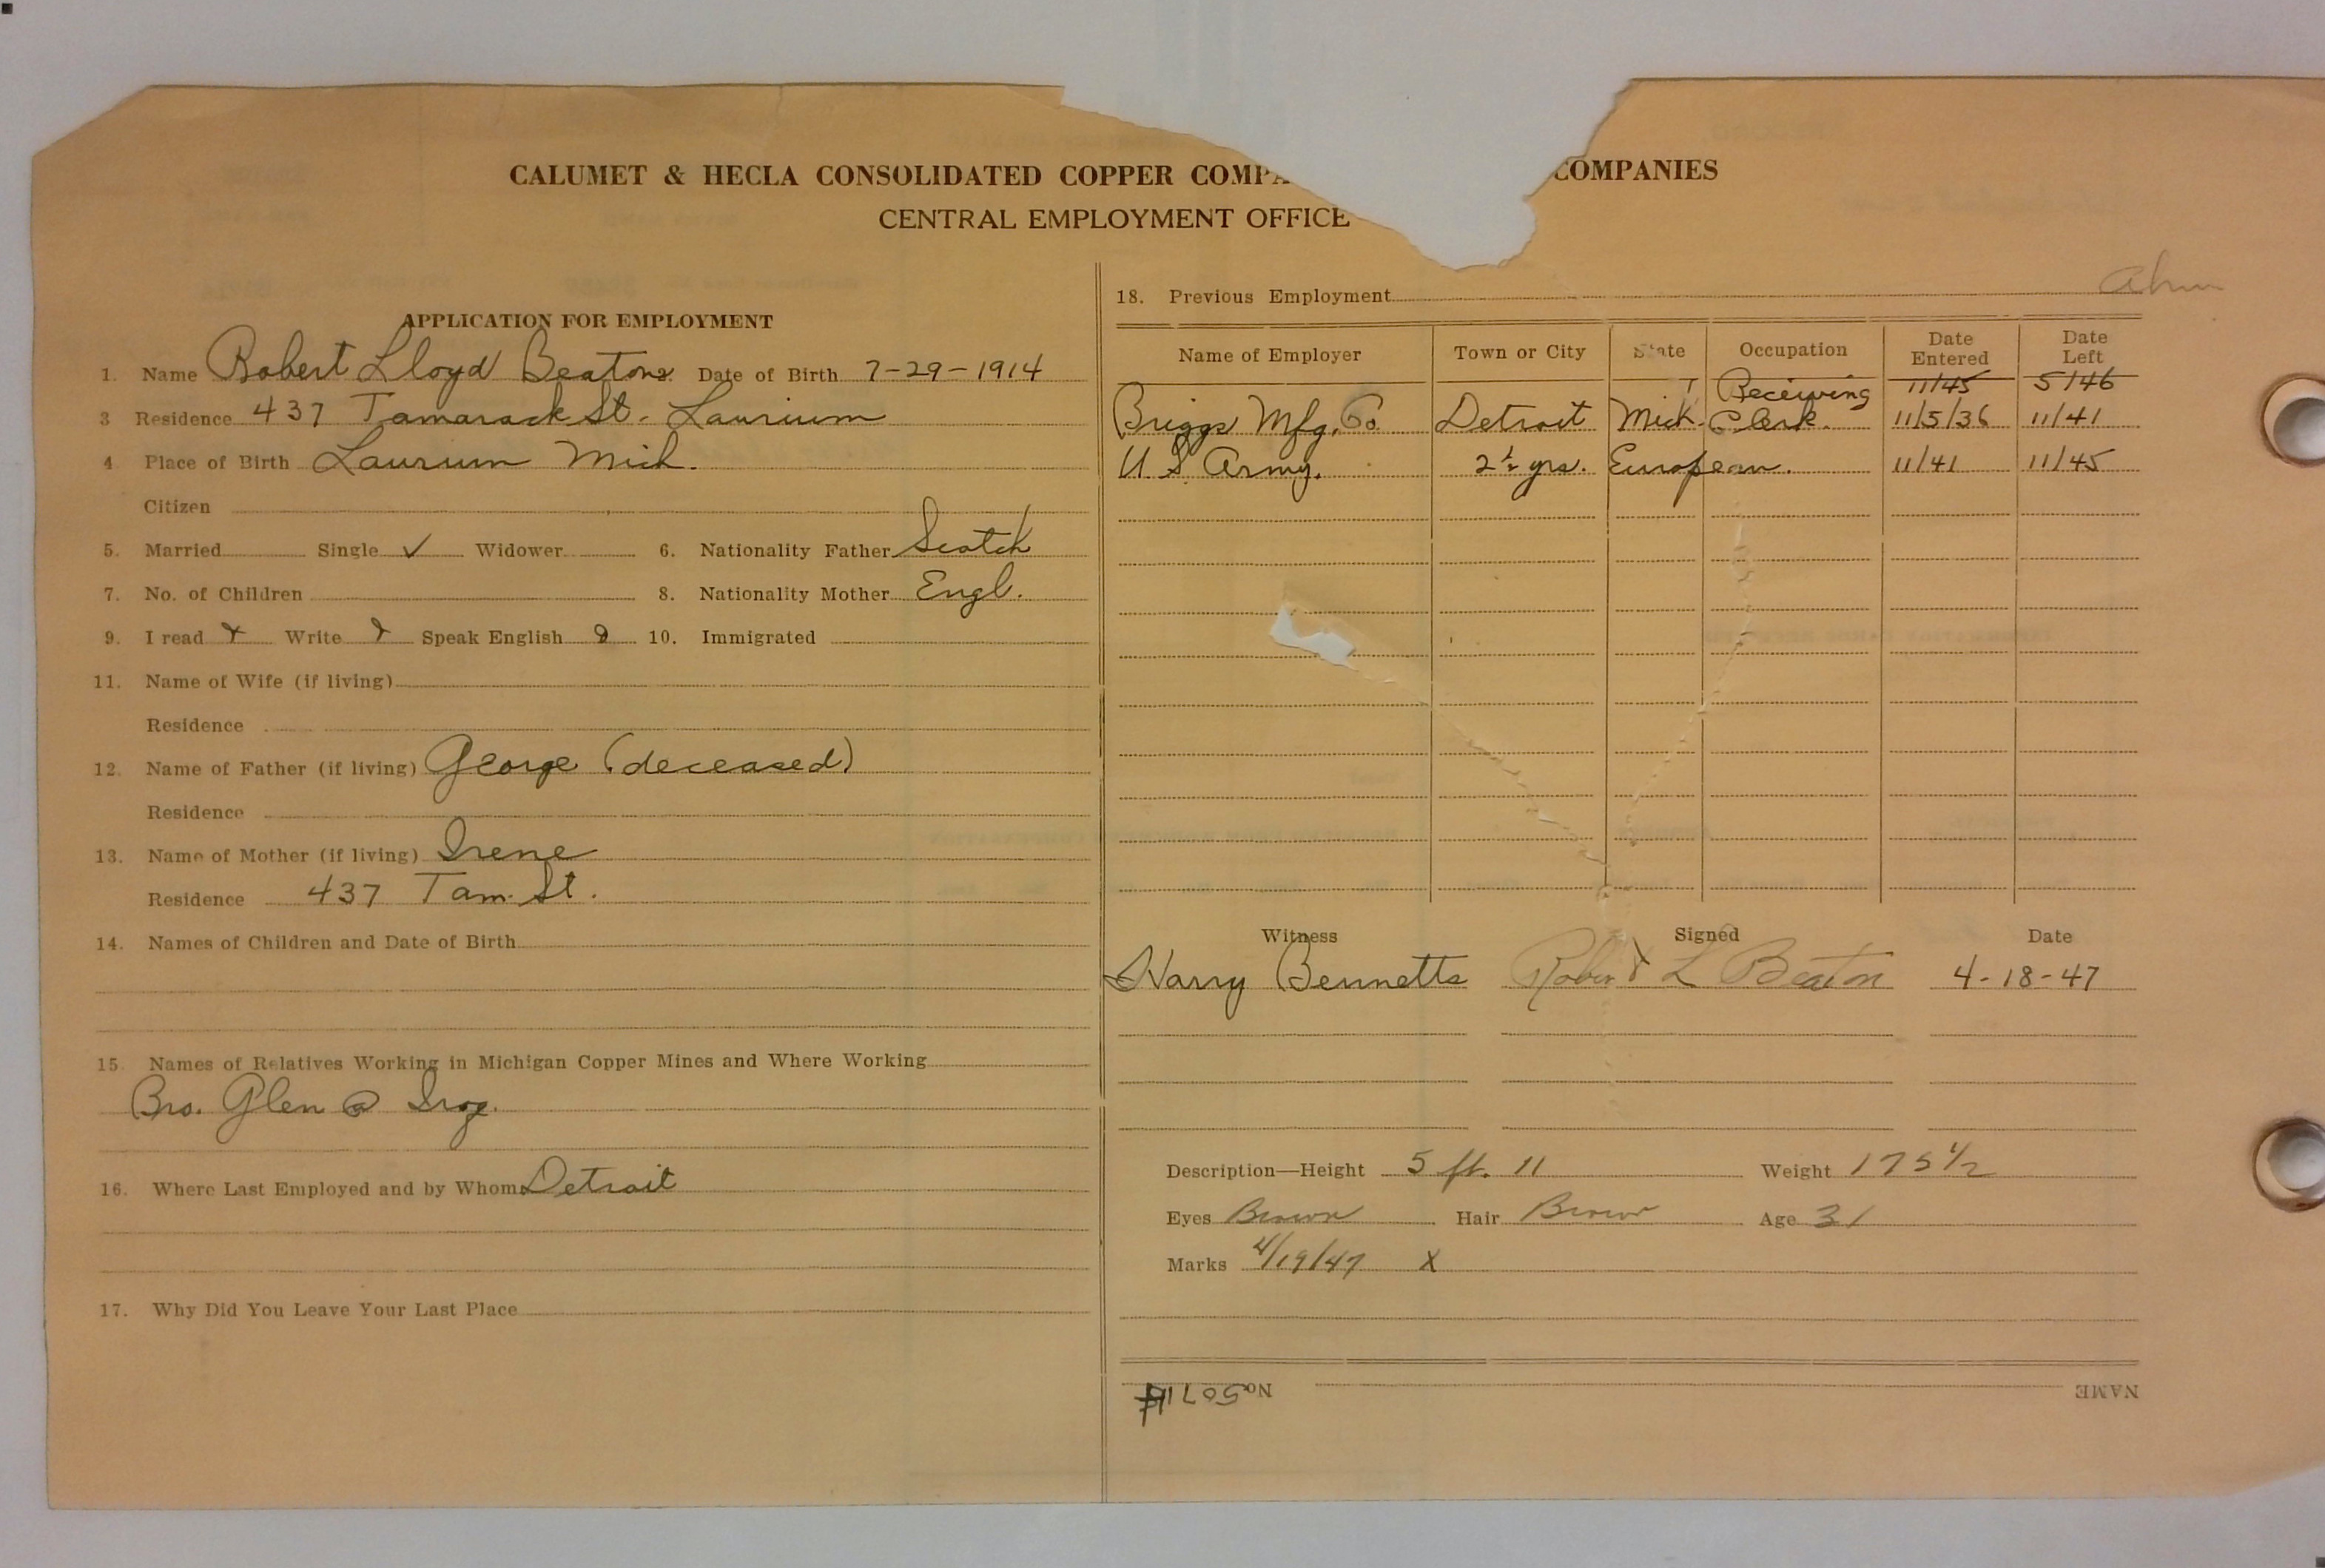 CALUMET & HECLA CONSOLIDATED COPPER COMPA COMPANIES
CENTRAL EMPLOYMENT OFFICE
APPLICATION FOR EMPLOYMENT
1. Name Robert Lloyd Beaton Date of Birth 7-29-1914
3 Residence 437 Tamarack St. Laurium
4. Place of Birth Laurium Mich.
Citizen
5. Married Single ✓ Widower 6. Nationality Father Scotch
7. No. of Children 8. Nationality Mother Engl.
9. I read Write Speak English 10. Immigrated
11. Name of Wife (if living)
Residence
12. Name of Father (if living) George (deceased)
Residence
13. Name of Mother (if living) Irene
Residence 437 Tam. St.
14. Names of Children and Date of Birth
15. Names of Relatives Working in Michigan Copper Mines and Where Working
Bro. Glen @
16. Where Last Employed and by Whom Detroit
17. Why Did You Leave Your Last Place
18. Previous Employment
Name of Employer Town or City State Occupation Date Entered Date Left
11/45 5/46
Briggs Mfg. Co Detroit Mich. Receiving Clerk. 11/5/36 11/41
U.S. Army. 2½ yrs. European. 11/41 11/45
Witness Signed Date
Harry Bennetts Robert L Beaton 4-18-47
Description—Height 5 ft. 11 Weight 175 1/2
Eyes Brown Hair Brown Age 31
Marks 4/19/47 X
NAME No. 5071